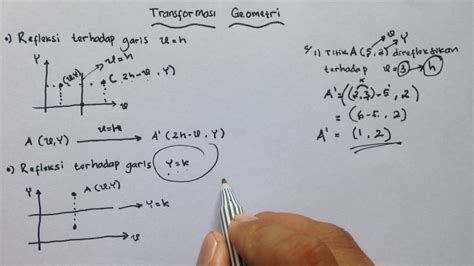 Transformasi Geometri
a) Refleksi terhadap garis x=h
Y x=h
(x,Y) ( 2h-x, Y)
x
A (x,Y) x=h A' (2h-x, Y)
b) Refleksi terhadap garis Y=k
Y A (x,Y)
Y=k
x
x Y
1) Titik A(5,2) direfleksikan
terhadap x=3 h
A'=((2.3)-5, 2)
= (6-5, 2)
A' = (1, 2)